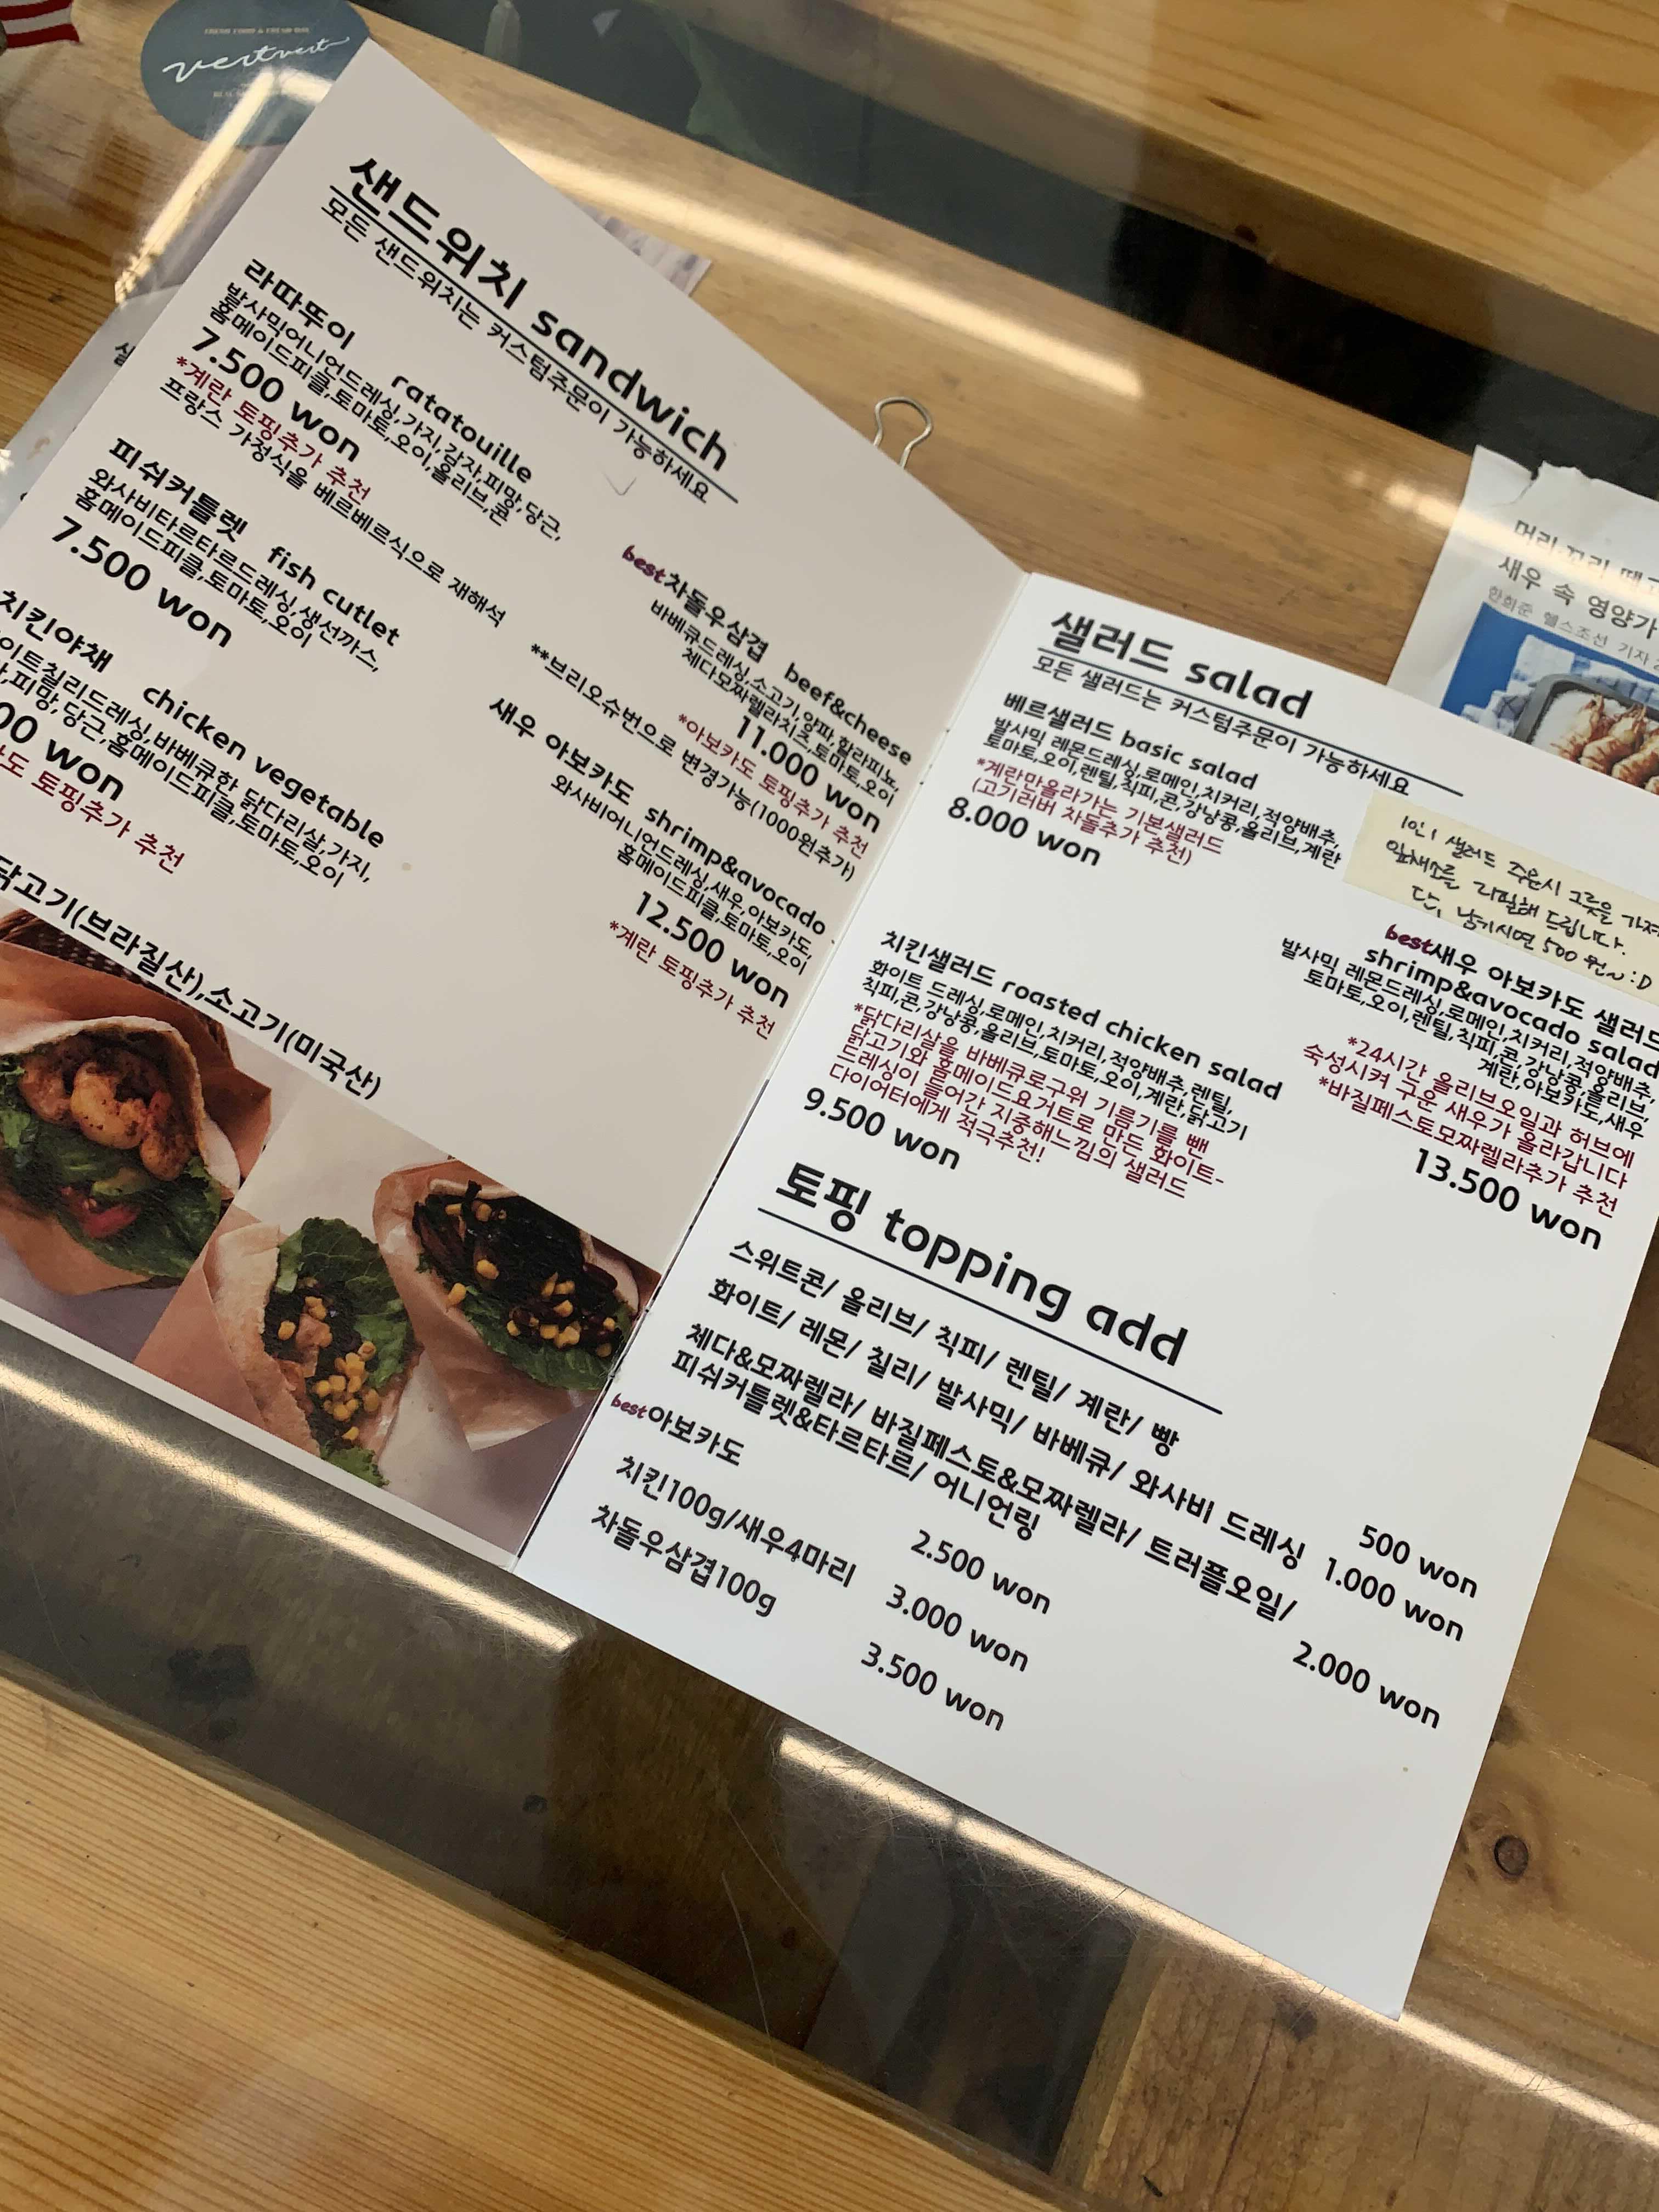 vertvert
샌드위치 sandwich
모든 샌드위치는 커스텀주문이 가능하세요
라따뚜이 ratatouille
발사믹어니언드레싱,가지,감자,피망,당근,
홈메이드피클,토마토,오이,올리브,콘
7.500 won
*계란 토핑추가 추천
프랑스 가정식을 베르베르식으로 재해석
피쉬커틀렛 fish cutlet
와사비타르타르드레싱,생선까스,
홈메이드피클,토마토,오이
7.500 won
치킨야채 chicken vegetable
이트칠리드레싱,바베큐한 닭다리살,가지,
,피망,당근,홈메이드피클,토마토,오이
00 won
도 토핑추가 추천
best차돌우삼겹 beef&cheese
바베큐드레싱,소고기,양파,할라피뇨,
체다모짜렐라치즈,토마토,오이
11.000 won
*아보카도 토핑추가 추천
**브리오슈번으로 변경가능(1000원추가)
새우 아보카도 shrimp&avocado
와사비어니언드레싱,새우,아보카도,
홈메이드피클,토마토,오이
12.500 won
*계란 토핑추가 추천
닭고기(브라질산),소고기(미국산)
샐러드 salad
모든 샐러드는 커스텀주문이 가능하세요
베르샐러드 basic salad
발사믹 레몬드레싱,로메인,치커리,적양배추,
토마토,오이,렌틸,칙피,콘,강낭콩,올리브,계란
*계란만올라가는 기본샐러드
(고기러버 차돌추가 추천)
8.000 won
1인 1 샐러드 주문시 그릇을 가져
잎채소를 리필해 드립니다.
단, 남기시면 500원~ :D
치킨샐러드 roasted chicken salad
화이트 드레싱,로메인,치커리,적양배추,렌틸,
칙피,콘,강낭콩,올리브,토마토,오이,계란,닭고기
*닭다리살을 바베큐로구워 기름기를 뺀
닭고기와 홈메이드요거트로 만든 화이트-
드레싱이 들어간 지중해느낌의 샐러드
다이어터에게 적극추천!
9.500 won
best새우 아보카도 샐러드
shrimp&avocado salad
발사믹 레몬드레싱,로메인,치커리,적양배추,
토마토,오이,렌틸,칙피,콘,강낭콩,올리브,
계란,아보카도,새우
*24시간 올리브오일과 허브에
숙성시켜 구운 새우가 올라갑니다
*바질페스토모짜렐라추가 추천
13.500 won
토핑 topping add
스위트콘/ 올리브/ 칙피/ 렌틸/ 계란/ 빵 500 won
화이트/ 레몬/ 칠리/ 발사믹/ 바베큐/ 와사비 드레싱 1.000 won
체다&모짜렐라/ 바질페스토&모짜렐라/ 트러플오일/
피쉬커틀렛&타르타르/ 어니언링 2.000 won
best아보카도 2.500 won
치킨100g/새우4마리 3.000 won
차돌우삼겹100g 3.500 won
머리·꼬리 떼
새우 속 영양가
한희준 헬스조선 기자